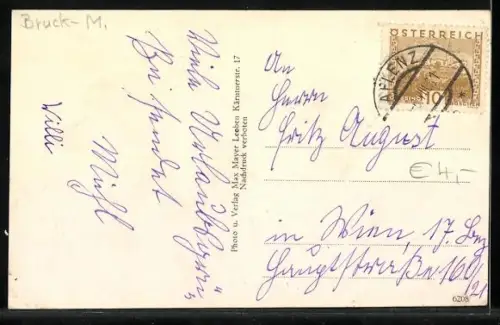 Bruck-M.
Viele Urlaubsgrüße
sendet
Willi
Photo u. Verlag Max Mayer Leoben Kärnterstr. 17
Nachdruck verboten
ÖSTERREICH
AFLENZ
10
An
Herrn
Fritz August
€4,-
in Wien, 17. Bez
Hauptstraße 160/
21
6208